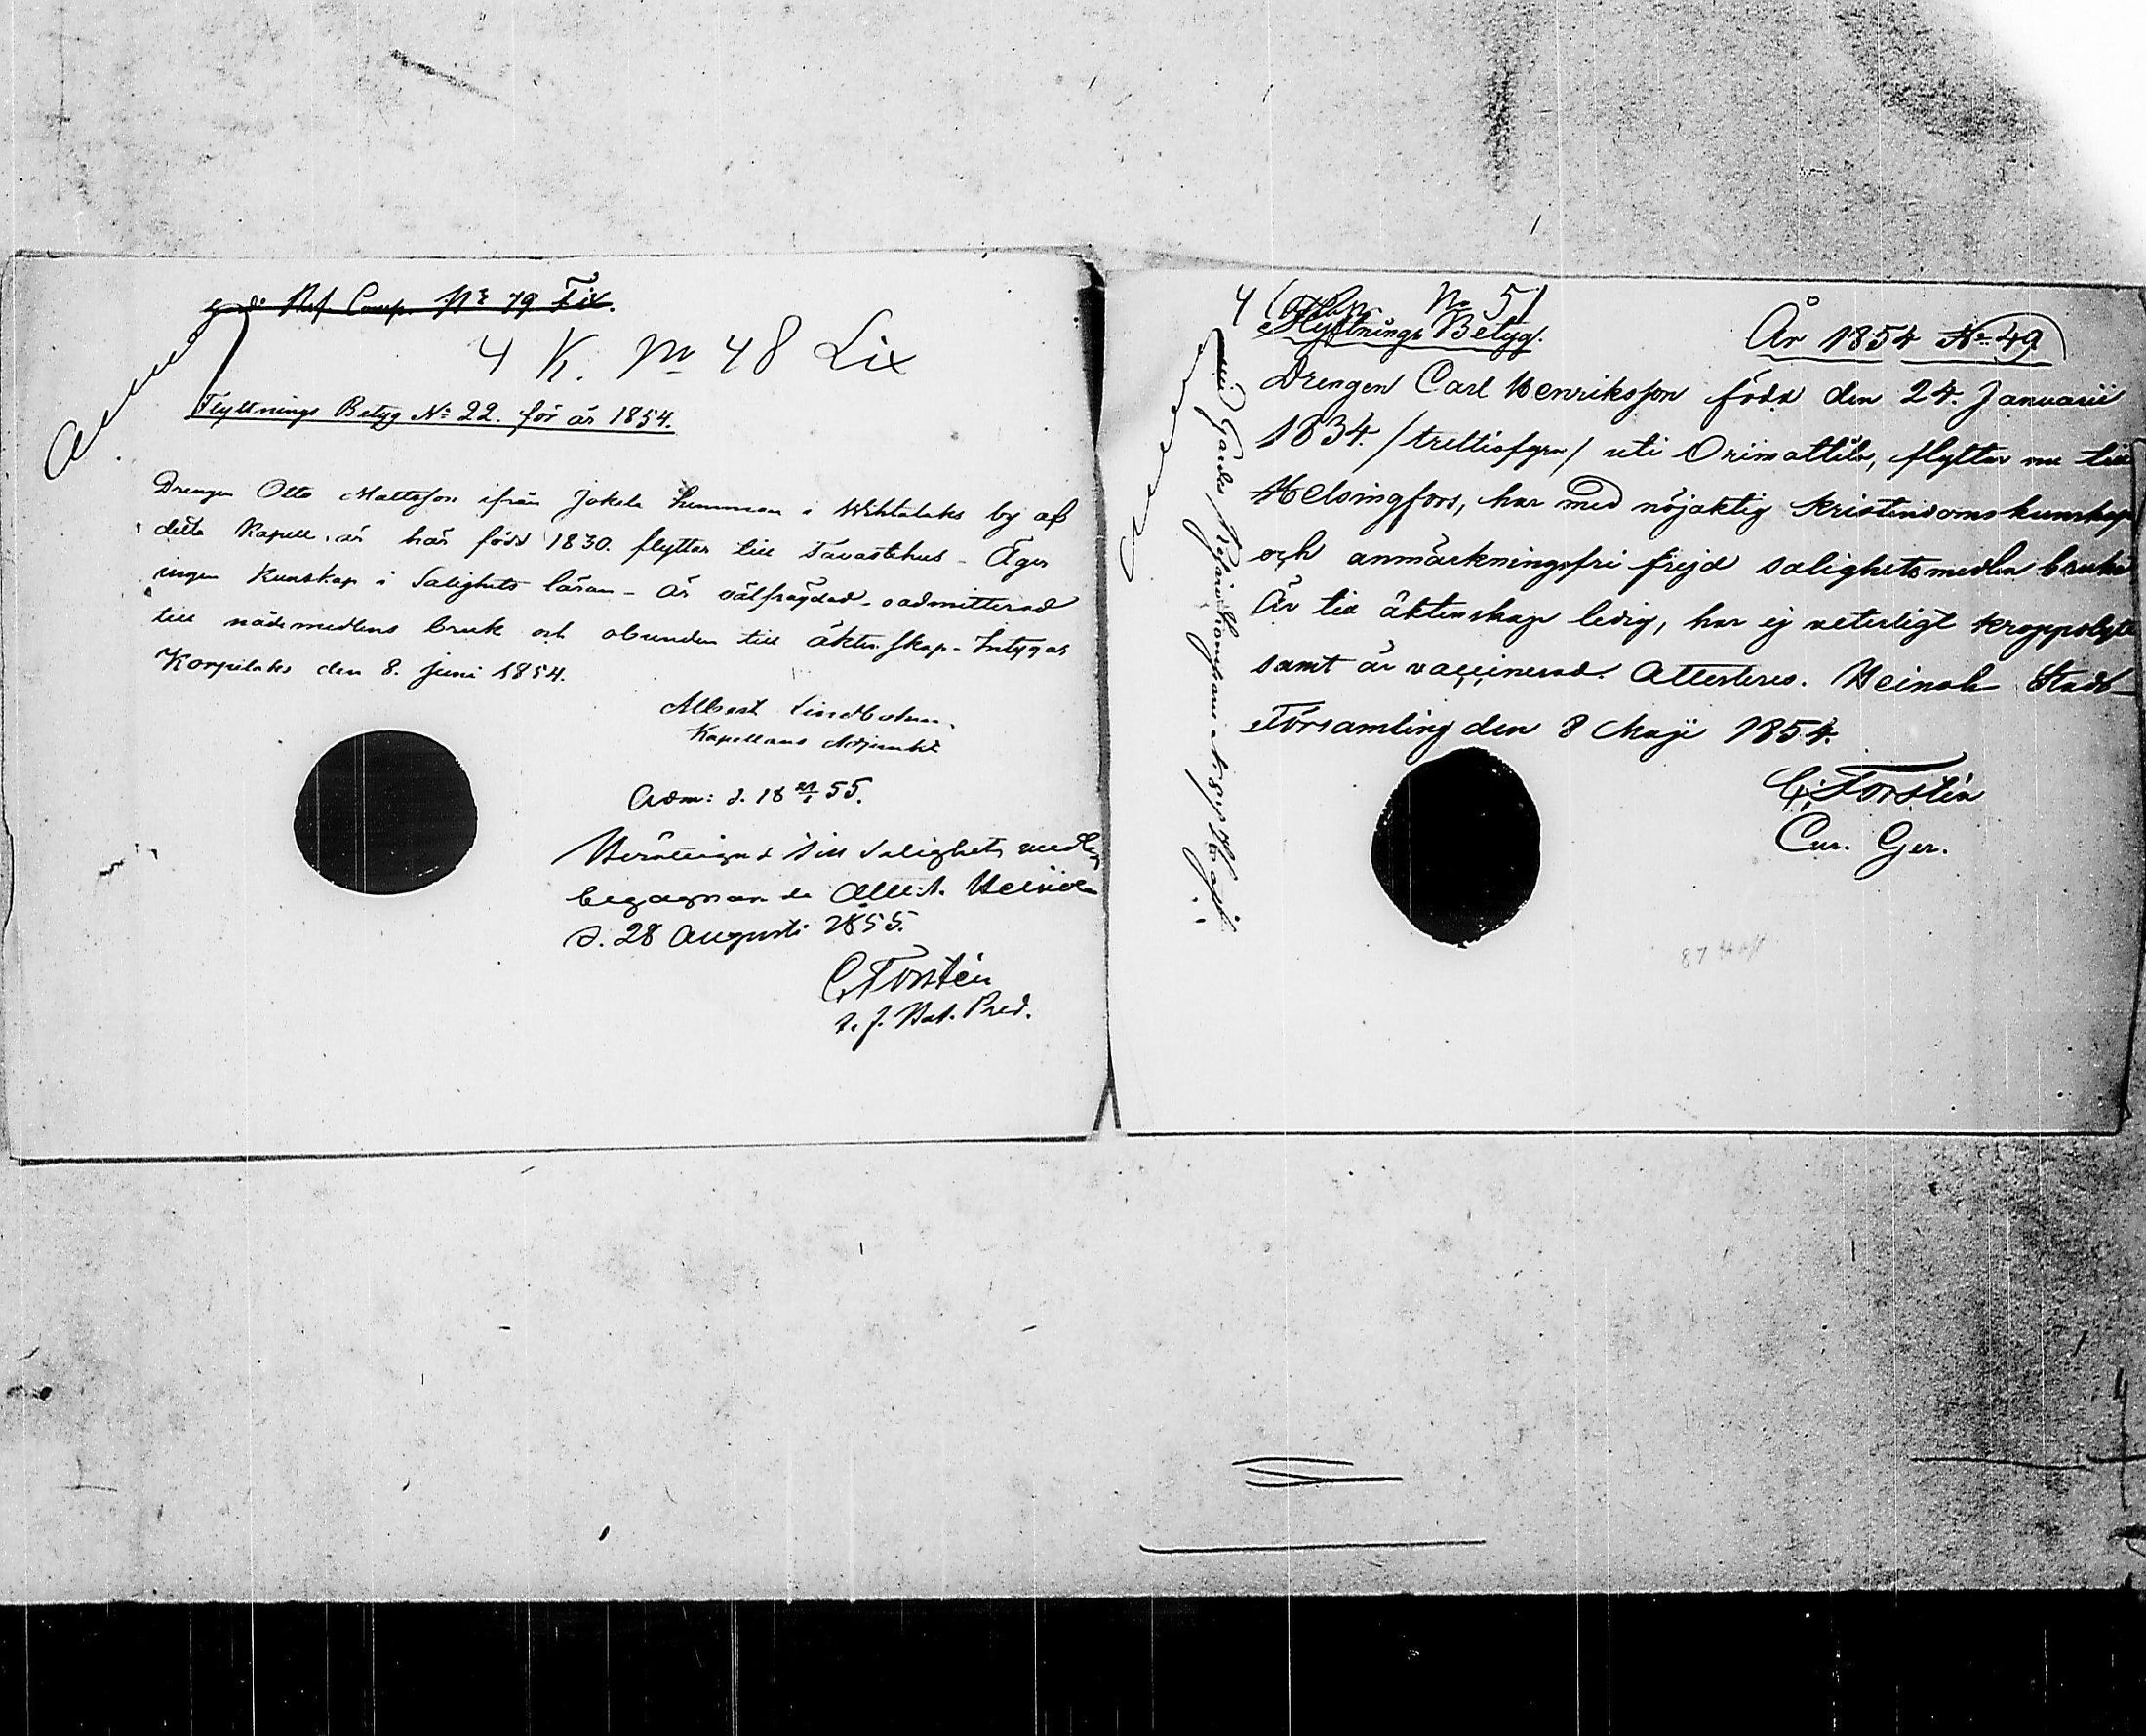 Comp. No 79 Fix.
4 K. No 48 Lix
Flyttnings Betyg No 22. för år 1854.
Drengen Otto Mattsson ifrån Jokela i by af
detta Kapell, är här född 1830. flyttar till Tavastehus - Äger
ingen Kunskap i Salighets läran - är välfrägdad - oadmitterad
till nådemedlens bruk och obunden till äktenskap - Intygas
Korpilaks den 8. Juni 1854.
Albert Lindholm
Kapellans Adjunkt
Adm: d. 18 55.
Salighets medlen
begagnande Attest. Heinola
d. 28 Augusti 1855.
C. Forstén
t. f. Bat. Pred.
4 No 51
Flyttnings Betyg.
År 1854 No 49.
Drengen Carl Henriksson född den 24 Januarii
1834. /trettiofyra/ uti Orimattila, flyttar nu till
Helsingfors, har med nöjaktig kristendomskunskap
och anmärkningsfri frejd salighetsmedlen brukat
Är till äktenskap ledig, har ej veterligt kroppslyte
samt är vaccinerad. Attesteres. Heinola Stads-
Församling den 8 Maji 1854.
C. Forstén
Cur. Ger.